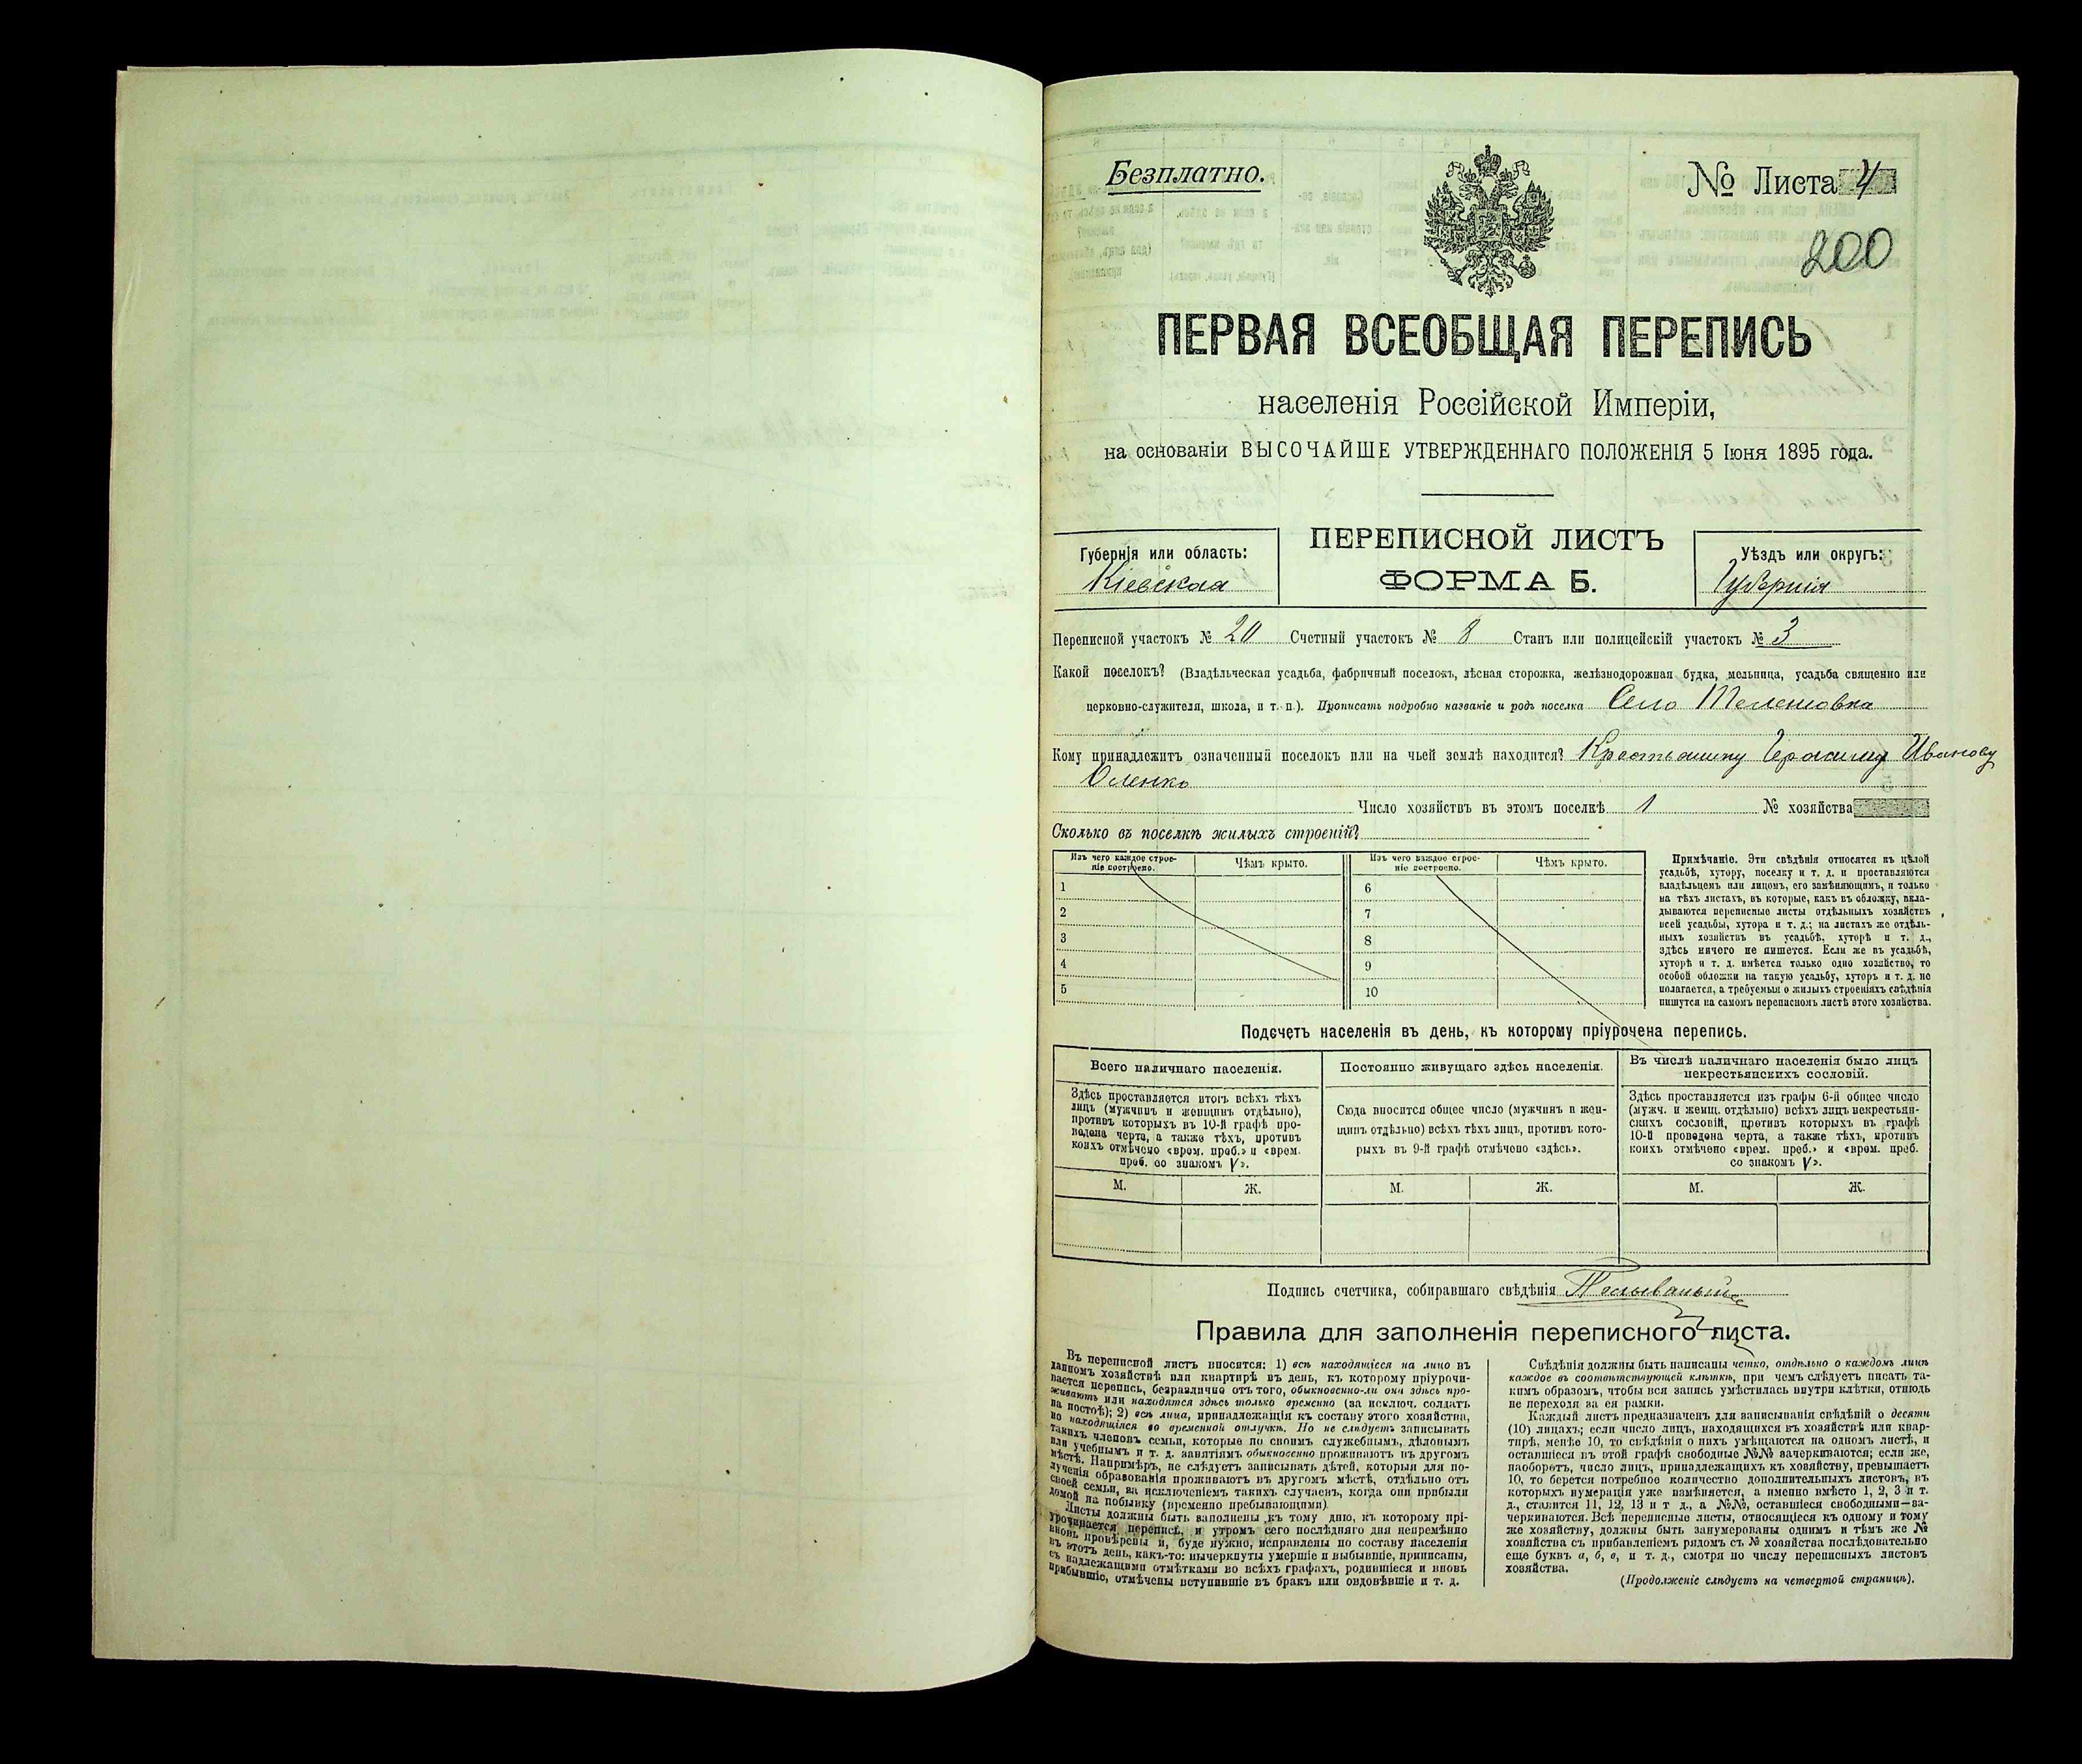 Безплатно.
№ Листа 4
200
ПЕРВАЯ ВСЕОБЩАЯ ПЕРЕПИСЬ
населенія Россійской Имперіи,
на основаніи ВЫСОЧАЙШЕ УТВЕРЖДЕННАГО ПОЛОЖЕНІЯ 5 Іюня 1895 года.
Губернія или область:
Кіевская
ПЕРЕПИСНОЙ ЛИСТЪ
ФОРМА Б.
Уѣздъ или округъ:
Губернія
Переписной участокъ № 20 Счетный участокъ № 8 Станъ или полицейскій участокъ № 3
Какой поселокъ? (Владѣльческая усадьба, фабричный поселокъ, лѣсная сторожка, желѣзнодорожная будка, мельница, усадьба священно или
церковно-служителя, школа, и т. п.). Прописать подробно названіе и родъ поселка Село Телешовка
Кому принадлежитъ означенный поселокъ или на чьей землѣ находится? Крестьянину Герасиму Иванову
Оленко
Число хозяйствъ въ этомъ поселкѣ 1 № хозяйства
Сколько въ поселкѣ жилыхъ строеній?
Изъ чего каждое строе-
ніе построено.
Чѣмъ крыто.
Изъ чего каждое строе-
ніе построено.
Чѣмъ крыто.
1
2
3
4
5
6
7
8
9
10
Примѣчаніе. Эти свѣдѣнія относятся къ цѣлой
усадьбѣ, хутору, поселку и т. д. и проставляются
владѣльцемъ или лицомъ, его замѣняющимъ, и только
на тѣхъ листахъ, въ которые, какъ въ обложку, вкла-
дываются переписные листы отдѣльныхъ хозяйствъ
всей усадьбы, хутора и т. д.; на листахъ же отдѣль-
ныхъ хозяйствъ въ усадьбѣ, хуторѣ и т. д.,
здѣсь ничего не пишется. Если же въ усадьбѣ,
хуторѣ и т. д. имѣется только одно хозяйство, то
особой обложки на такую усадьбу, хуторъ и т. д. не
полагается, а требуемыя о жилыхъ строеніяхъ свѣдѣнія
пишутся на самомъ переписномъ листѣ этого хозяйства.
Подсчетъ населенія въ день, къ которому пріурочена перепись.
Всего наличнаго населенія.
Здѣсь проставляется итогъ всѣхъ тѣхъ
лицъ (мужчинъ и женщинъ отдѣльно),
противъ которыхъ въ 10-й графѣ про-
ведена черта, а также тѣхъ, противъ
коихъ отмѣчено «врем. преб.» и «врем.
преб. со знакомъ V».
Постоянно живущаго здѣсь населенія.
Сюда вносится общее число (мужчинъ и жен-
щинъ отдѣльно) всѣхъ тѣхъ лицъ, противъ кото-
рыхъ въ 9-й графѣ отмѣчено «здѣсь».
Въ числѣ наличнаго населенія было лицъ
некрестьянскихъ сословій.
Здѣсь проставляется изъ графы 6-й общее число
(мужч. и женщ. отдѣльно) всѣхъ лицъ некрестьян-
скихъ сословій, противъ которыхъ въ графѣ
10-й проведена черта, а также тѣхъ, противъ
коихъ отмѣчено «врем. преб.» и «врем. преб.
со знакомъ V».
М. Ж. М. Ж. М. Ж.
Подпись счетчика, собиравшаго свѣдѣнія
Правила для заполненія переписного листа.
Въ переписной листъ вносятся: 1) всѣ находящіеся на лицо въ
данномъ хозяйствѣ или квартирѣ въ день, къ которому пріурочи-
вается перепись, безразлично отъ того, обыкновенно-ли они здѣсь про-
живаютъ или находятся здѣсь только временно (за исключ. солдатъ
на постоѣ); 2) всѣ лица, принадлежащія къ составу этого хозяйства,
но находящіяся во временной отлучкѣ. Но не слѣдуетъ записывать
такихъ членовъ семьи, которые по своимъ служебнымъ, дѣловымъ
или учебнымъ и т. д. занятіямъ обыкновенно проживаютъ въ другомъ
мѣстѣ. Напримѣръ, не слѣдуетъ записывать дѣтей, которыя для по-
лученія образованія проживаютъ въ другомъ мѣстѣ, отдѣльно отъ
своей семьи, за исключеніемъ такихъ случаевъ, когда они прибыли
домой на побывку (временно пребывающими).
Листы должны быть заполнены къ тому дню, къ которому прі-
урочивается перепись, и утромъ сего послѣдняго дня непремѣнно
вновь провѣрены и, буде нужно, исправлены по составу населенія
въ этотъ день, какъ-то: вычеркнуты умершіе и выбывшіе, приписаны,
съ надлежащими отмѣтками во всѣхъ графахъ, родившіеся и вновь
прибывшіе, отмѣчены вступившіе въ бракъ или овдовѣвшіе и т. д.
Свѣдѣнія должны быть написаны четко, отдѣльно о каждомъ лицѣ
каждое въ соотвѣтствующей клѣткѣ, при чемъ слѣдуетъ писать та-
кимъ образомъ, чтобы вся запись умѣстилась внутри клѣтки, отнюдь
не переходя за ея рамки.
Каждый листъ предназначенъ для записыванія свѣдѣній о десяти
(10) лицахъ; если число лицъ, находящихся въ хозяйствѣ или квар-
тирѣ, менѣе 10, то свѣдѣнія о нихъ умѣщаются на одномъ листѣ, и
оставшіеся въ этой графѣ свободные №№ зачеркиваются; если же,
наоборотъ, число лицъ, принадлежащихъ къ хозяйству, превышаетъ
10, то берется потребное количество дополнительныхъ листовъ, въ
которыхъ нумерація уже измѣняется, а именно вмѣсто 1, 2, 3 и т.
д., ставится 11, 12, 13 и т д., а №№, оставшіеся свободными—за-
черкиваются. Всѣ переписные листы, относящіеся къ одному и тому
же хозяйству, должны быть занумерованы однимъ и тѣмъ же №
хозяйства съ прибавленіемъ рядомъ съ № хозяйства послѣдовательно
еще буквъ а, б, в, и т. д., смотря по числу переписныхъ листовъ
хозяйства.
(Продолженіе слѣдуетъ на четвертой страницѣ).